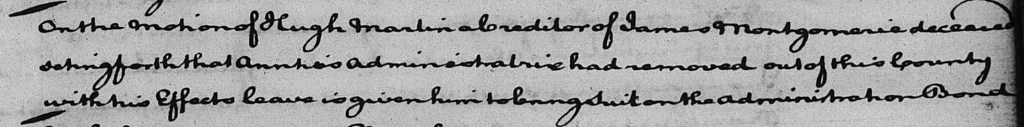 On the Motion of Hugh Martin a Creditor of James Montgomerie deceased
seting forth that Ann his Administratrix had removed out of this County
with his Effects leave is given him to bring Suit on the Administration Bond